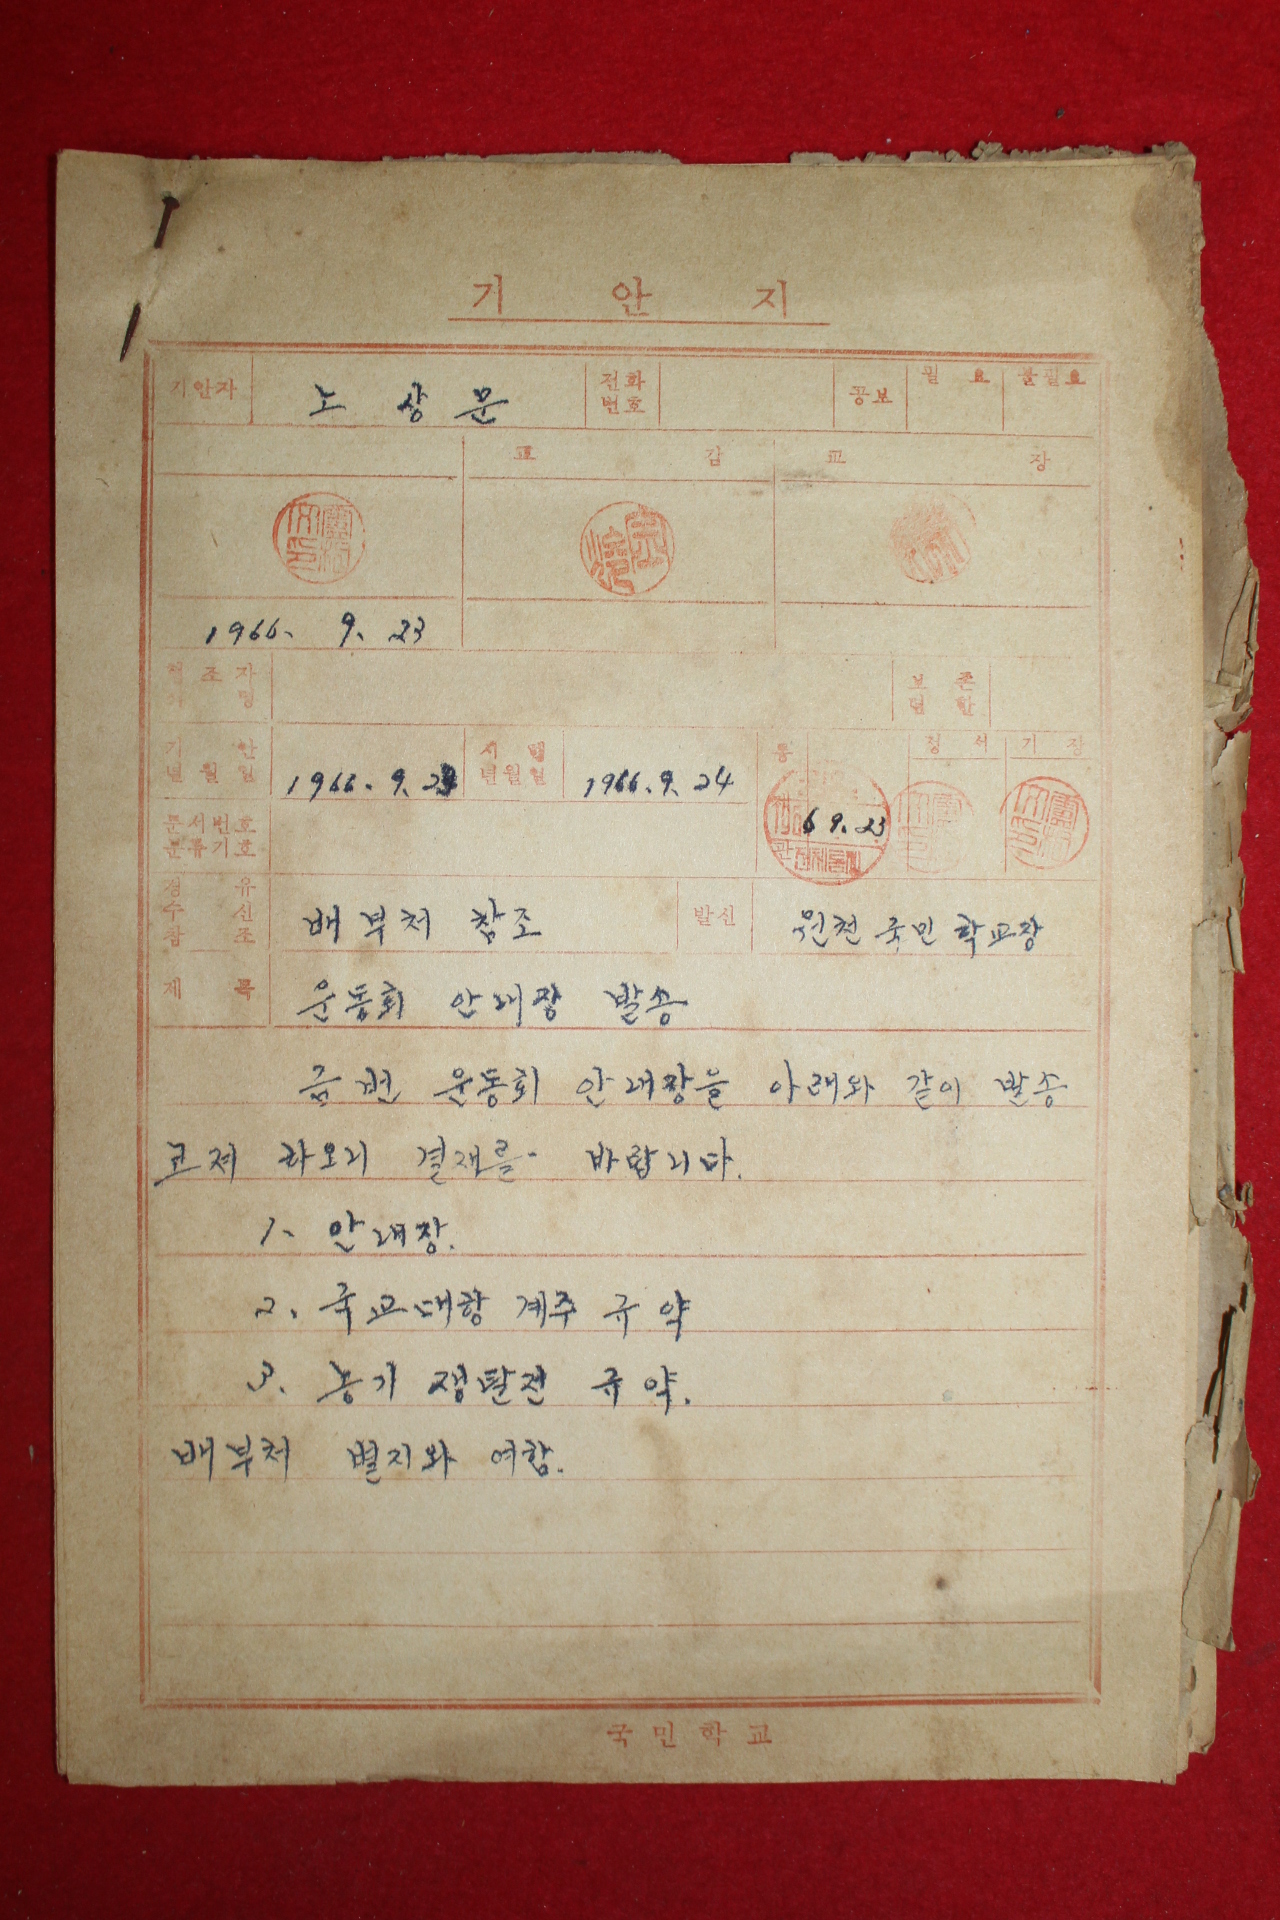 기 안 지
기안자 노 상 문 전화 번호 공보 필 요 불필요
교 감 교 장
1966. 9. 23
협 조 자 명 보 존 년 한
기 안 년 월 일 1966. 9. 23 시 행 년월일 1966. 9. 24 통 정 서 기 장
6 9. 23
문서번호 분류기호
경 유 수 신 참 조 배부처 참조 발신 원천 국민 학교장
제 목 운동회 안내장 발송
금번 운동회 안내장을 아래와 같이 발송
코져 하오니 결재를 바랍니다.
1. 안내장.
2. 국교대항 계주 규약
3. 농기 쟁탈전 규약.
배부처 별지와 여함.
국민학교